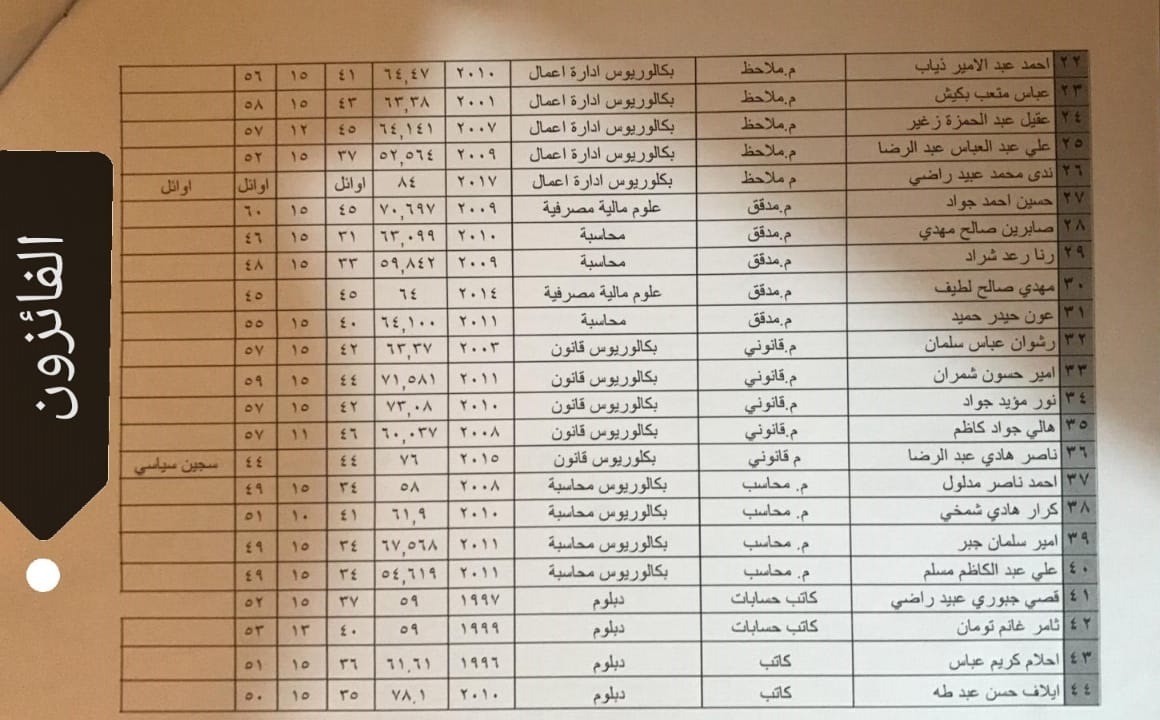 الفائزون
٢٢ احمد عبد الامير ذياب م.ملاحظ بكالوريوس ادارة اعمال ٢٠١٠ ٦٤,٤٧ ٤١ ١٥ ٥٦
٢٣ عباس متعب بكيش م.ملاحظ بكالوريوس ادارة اعمال ٢٠٠١ ٦٣,٣٨ ٤٣ ١٥ ٥٨
٢٤ عقيل عبد الحمزة زغير م.ملاحظ بكالوريوس ادارة اعمال ٢٠٠٧ ٦٤,١٤١ ٤٥ ١٢ ٥٧
٢٥ علي عبد العباس عبد الرضا م.ملاحظ بكالوريوس ادارة اعمال ٢٠٠٩ ٥٢,٥٦٤ ٣٧ ١٥ ٥٢
٢٦ ندى محمد عبيد راضي م ملاحظ بكلوريوس ادارة اعمال ٢٠١٧ ٨٤ اوائل اوائل اوائل
٢٧ حسين احمد جواد م.مدقق علوم مالية مصرفية ٢٠٠٩ ٧٠,٦٩٧ ٤٥ ١٥ ٦٠
٢٨ صابرين صالح مهدي م.مدقق محاسبة ٢٠١٠ ٦٣,٠٩٩ ٣١ ١٥ ٤٦
٢٩ رنا رعد شراد م.مدقق محاسبة ٢٠٠٩ ٥٩,٨٤٢ ٣٣ ١٥ ٤٨
٣٠ مهدي صالح لطيف م.مدقق علوم مالية مصرفية ٢٠١٤ ٦٤ ٤٥ ٤٥
٣١ عون حيدر حميد م.مدقق محاسبة ٢٠١١ ٦٤,١٠٠ ٤٠ ١٥ ٥٥
٣٢ رشوان عباس سلمان م.قانوني بكالوريوس قانون ٢٠٠٣ ٦٣,٣٧ ٤٢ ١٥ ٥٧
٣٣ امير حسون شمران م.قانوني بكالوريوس قانون ٢٠١١ ٧١,٥٨١ ٤٤ ١٥ ٥٩
٣٤ نور مؤيد جواد م.قانوني بكالوريوس قانون ٢٠١٠ ٧٣,٠٨ ٤٢ ١٥ ٥٧
٣٥ هالي جواد كاظم م.قانوني بكالوريوس قانون ٢٠٠٨ ٦٠,٠٣٧ ٤٦ ١١ ٥٧
٣٦ ناصر هادي عبد الرضا م قانوني بكلوريوس قانون ٢٠١٥ ٧٦ ٤٤ ٤٤ سجين سياسي
٣٧ احمد ناصر مدلول م. محاسب بكالوريوس محاسبة ٢٠٠٨ ٥٨ ٣٤ ١٥ ٤٩
٣٨ كرار هادي شمخي م. محاسب بكالوريوس محاسبة ٢٠١٠ ٦١,٩ ٤١ ١٠ ٥١
٣٩ امير سلمان جبر م. محاسب بكالوريوس محاسبة ٢٠١١ ٦٧,٥٦٨ ٣٤ ١٥ ٤٩
٤٠ علي عبد الكاظم مسلم م. محاسب بكالوريوس محاسبة ٢٠١١ ٥٤,٦١٩ ٣٤ ١٥ ٤٩
٤١ قصي جبوري عبيد راضي كاتب حسابات دبلوم ١٩٩٧ ٥٩ ٣٧ ١٥ ٥٢
٤٢ ثامر غانم تومان كاتب حسابات دبلوم ١٩٩٩ ٥٩ ٤٠ ١٣ ٥٣
٤٣ احلام كريم عباس كاتب دبلوم ١٩٩٦ ٦١,٦١ ٣٦ ١٥ ٥١
٤٤ ايلاف حسن عبد طه كاتب دبلوم ٢٠١٠ ٧٨,١ ٣٥ ١٥ ٥٠